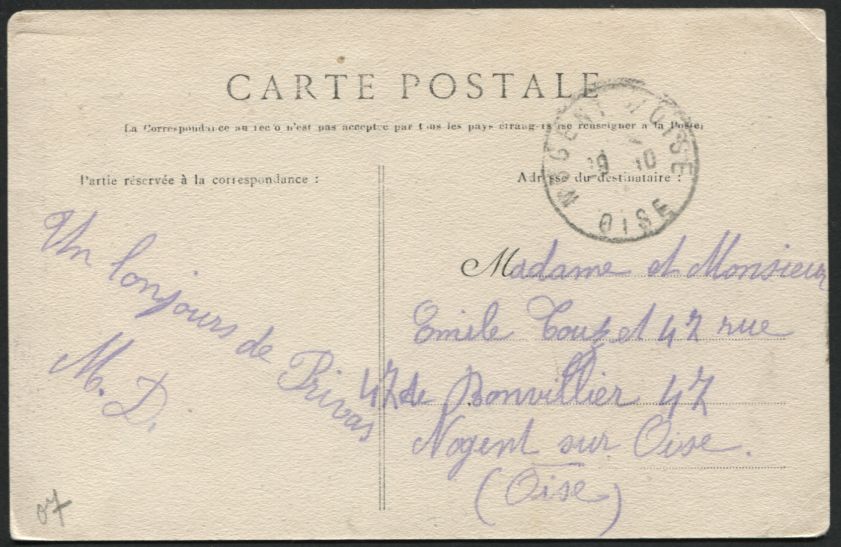 CARTE POSTALE
La Correspondance au recto n'est pas acceptée par tous les pays étrangers (se renseigner à la Poste)
Partie réservée à la correspondance :
Adresse du destinataire :
NOGENT S/ OISE
19 10
OISE
Un bonjours de Privas
M. D.
Madame et Monsieur
Emile Couzet 47 rue
47 de Bonvillier 47
Nogent sur Oise.
(Oise)
07